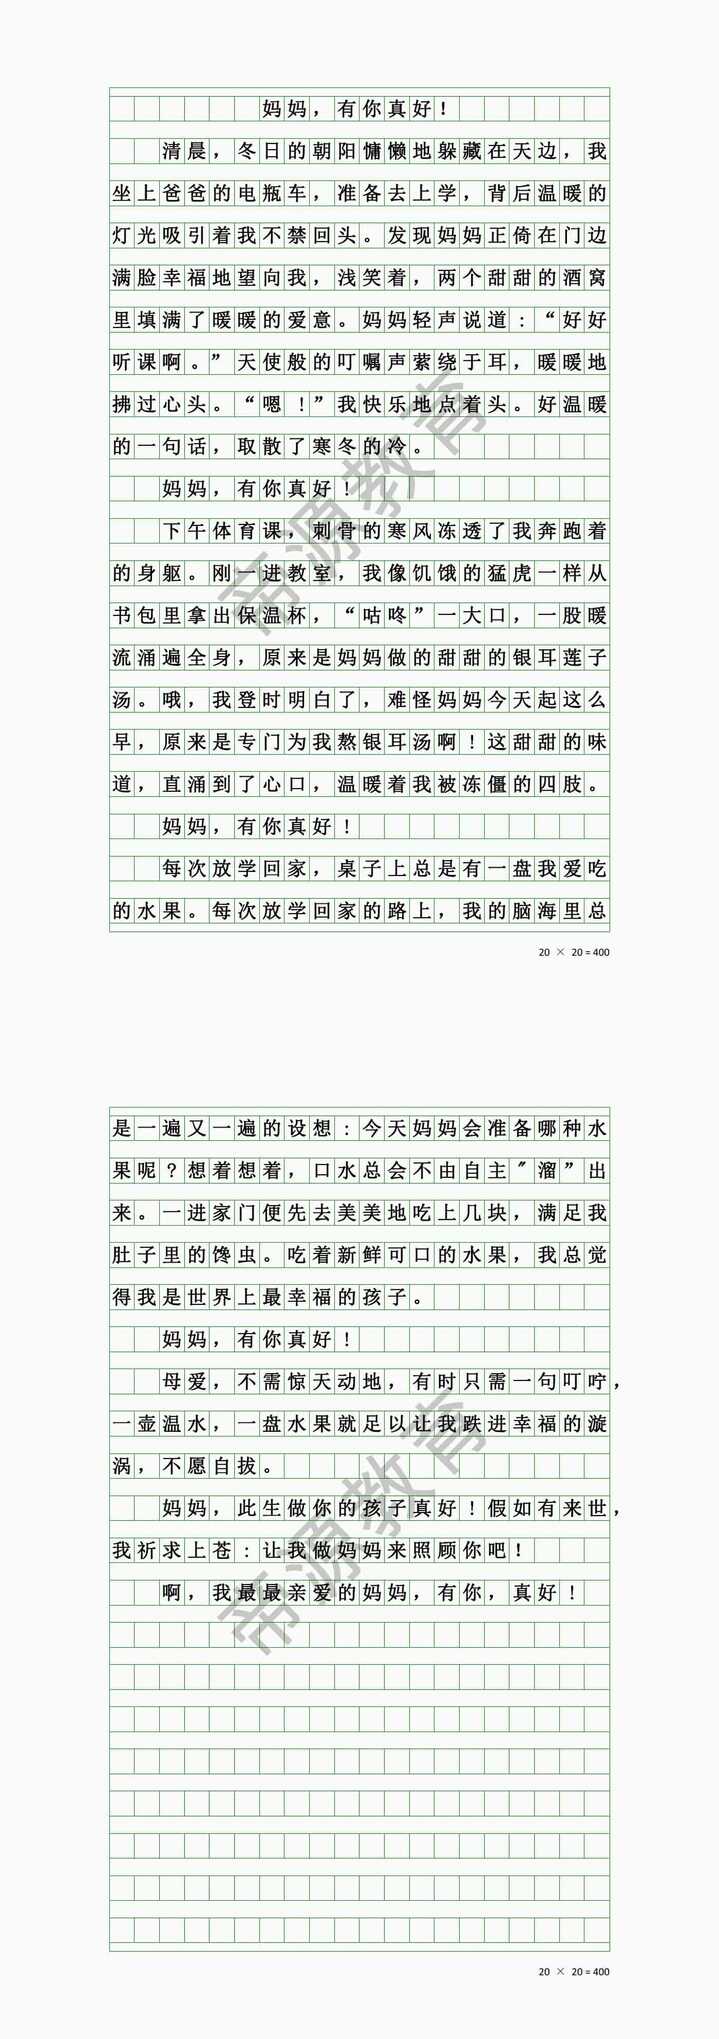 妈妈，有你真好！
清晨，冬日的朝阳慵懒地躲藏在天边，我
坐上爸爸的电瓶车，准备去上学，背后温暖的
灯光吸引着我不禁回头。发现妈妈正倚在门边
满脸幸福地望向我，浅笑着，两个甜甜的酒窝
里填满了暖暖的爱意。妈妈轻声说道：“好好
听课啊。”天使般的叮嘱声萦绕于耳，暖暖地
拂过心头。“嗯！”我快乐地点着头。好温暖
的一句话，取散了寒冬的冷。
妈妈，有你真好！
下午体育课，刺骨的寒风冻透了我奔跑着
的身躯。刚一进教室，我像饥饿的猛虎一样从
书包里拿出保温杯，“咕咚”一大口，一股暖
流涌遍全身，原来是妈妈做的甜甜的银耳莲子
汤。哦，我登时明白了，难怪妈妈今天起这么
早，原来是专门为我熬银耳汤啊！这甜甜的味
道，直涌到了心口，温暖着我被冻僵的四肢。
妈妈，有你真好！
每次放学回家，桌子上总是有一盘我爱吃
的水果。每次放学回家的路上，我的脑海里总
20 × 20 = 400
是一遍又一遍的设想：今天妈妈会准备哪种水
果呢？想着想着，口水总会不由自主〞溜”出
来。一进家门便先去美美地吃上几块，满足我
肚子里的馋虫。吃着新鲜可口的水果，我总觉
得我是世界上最幸福的孩子。
妈妈，有你真好！
母爱，不需惊天动地，有时只需一句叮咛，
一壶温水，一盘水果就足以让我跌进幸福的漩
涡，不愿自拔。
妈妈，此生做你的孩子真好！假如有来世，
我祈求上苍：让我做妈妈来照顾你吧！
啊，我最最亲爱的妈妈，有你，真好！
20 × 20 = 400
帝源教育
帝源教育